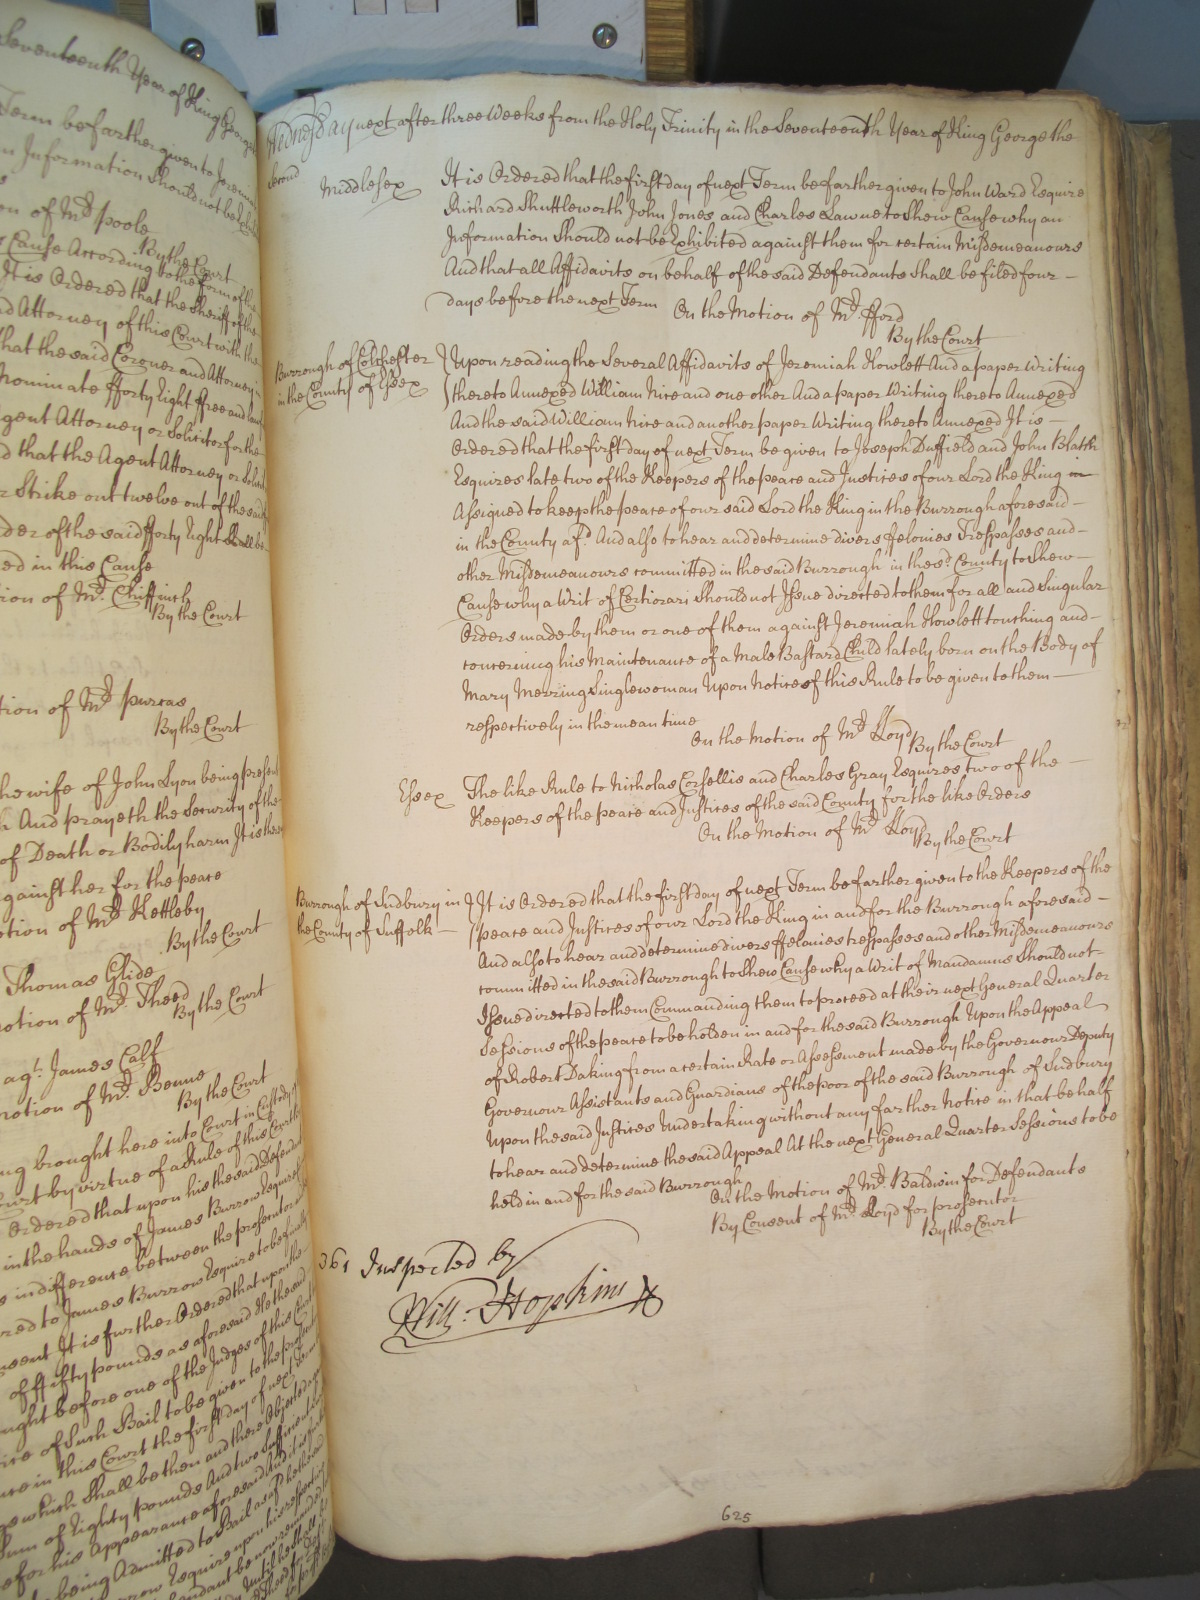 Seventeenth Year of King George
Term be farther given to Jeremy
n Information should not be Exhi
on of Mr. Poole
By the Court
Cause According to the form of the
It is Ordered that the Sheriff of the
nd Attorney of this Court with the
that the said Coroner and Attorney
Nominate fforty Eight ffree and
Agent Attorney or Solicitor for the
d that the Agent Attorney or Solici
r Strike out twelve out of the said
der of the said fforty Eight shall be
ed in this Cause
ion of Mr. Chiffinch
By the Court
tion of Mr. Purcas
By the Court
he wife of John Lyon being present
And prayeth the Security of the
of Death or Bodily harm It is there
against her for the peace
otion of Mr. Kettleby
By the Court
Thomas Glide
otion of Mr. Theed
By the Court
agt. James Calf
otion of Mr. Benne
By the Court
ng brought here into Court in Custody
Court by virtue of a Rule of this Court
Ordered that upon his the said Defendant
in the hands of James Burrow Esquire
s indifference between the prosecutor
red to James Burrow Esquire to be
nsent It is further Ordered that upon the
of ffifty pounds as aforesaid He the said
ought before one of the Judges of this Court
ice of Such Bail to be given to the
nce in this Court the first day of next Term
ge which Shall be then and there Objected
Sum of Eighty pounds And two Sufficient
for his Appearance aforesaid And it is
being Admitted to Bail as afd. he the said
rrow Esquire upon his
Wednesday next after three Weeks from the Holy Trinity in the Seventeenth Year of King George the
Second
Middlesex It is Ordered that the first day of next Term be farther given to John Ward Esquire
Richard Shuttleworth John Jones and Charles Lawne to Shew Cause why an
Information Should not be Exhibited against them for certain Misdemeanours
And that all Affidavits on behalf of the said Defendants Shall be filed four
days before the next Term On the Motion of Mr. fford
By the Court
Burrough of Colchester in the County of Essex } Upon reading the Several Affidavits of Jeremiah Howlett And a paper Writing
thereto Annexed William Nice and one other And a paper Writing thereto Annexed
And the said William Nice and another paper Writing thereto Annexed It is
Ordered that the first day of next Term be given to Joseph Duffield and John Blatch
Esquires late two of the Keepers of the peace and Justices of our Lord the King in
Assigned to keep the peace of our said Lord the King in the Burrough aforesaid
in the County afd. And also to hear and determine divers ffelonies Trespasses and
other Misdemeanours committed in the said Burrough in the sd. County to Shew
Cause why a Writ of Certiorari Should not Issue directed to them for all and Singular
Orders made by them or one of them against Jeremiah Howlett touching and
concerning his Maintenance of a Male Bastard Child lately born on the Body of
Mary Merring Singlewoman Upon Notice of this Rule to be given to them
respectively in the mean time
On the Motion of Mr. Lloyd
By the Court
Essex The like Rule to Nicholas Corsellis and Charles Gray Esquires two of the
Keepers of the peace and Justices of the said County for the like Orders
On the Motion of Mr. Lloyd
By the Court
Burrough of Sudbury in the County of Suffolk } It is Ordered that the first day of next Term be farther given to the Keepers of the
peace and Justices of our Lord the King in and for the Burrough aforesaid
And also to hear and determine divers ffelonies trespasses and other Misdemeanours
committed in the said Burrough to Shew Cause why a Writ of Mandamus Should not
Issue directed to them Commanding them to proceed at their next General Quarter
Sessions of the peace to be holden in and for the said Burrough Upon the Appeal
of Robert Daking from a certain Rate or Assessment made by the Governour Deputy
Governour Assistants and Guardians of the poor of the said Burrough of Sudbury
Upon the said Justices Undertaking without any farther Notice in that behalf
to hear and determine the said Appeal At the next General Quarter Sessions to be
held in and for the said Burrough
On the Motion of Mr. Baldwin for Defendants
By Consent of Mr. Lloyd for prosecutor
By the Court
361 Inspected by
Will. Hopkins
625